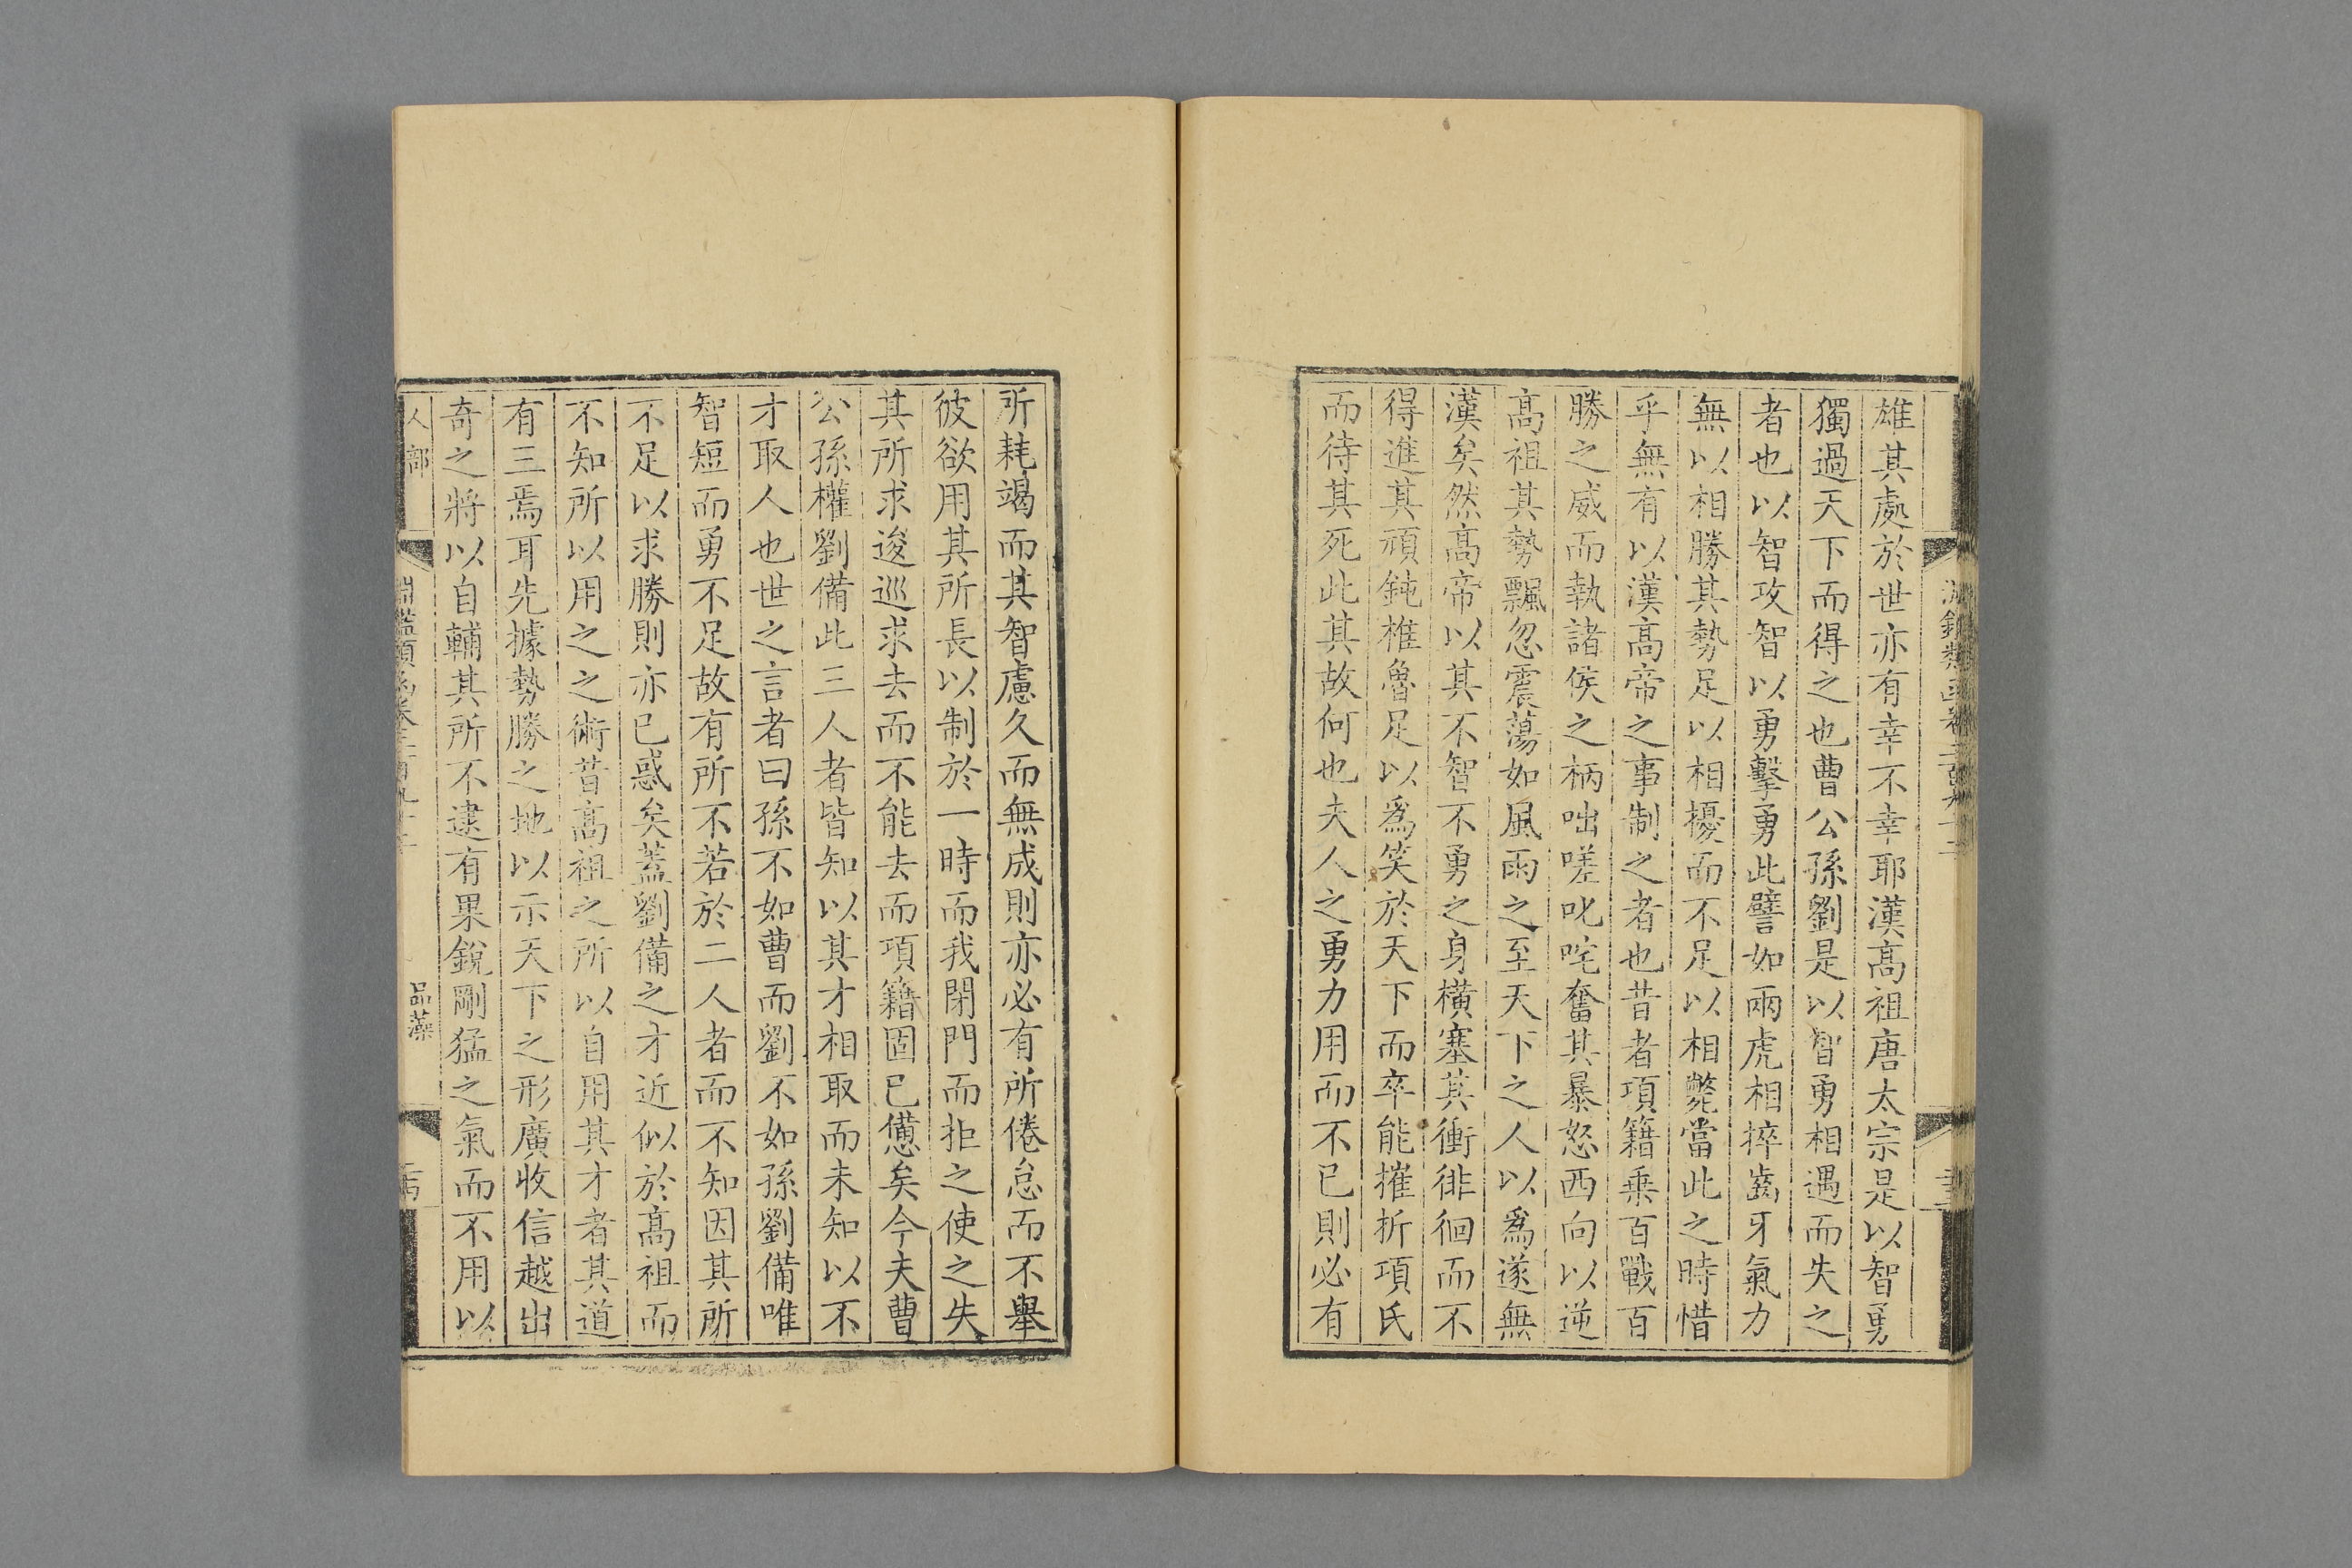 雄其處於世亦有幸不幸耶漢高祖唐太宗是以智勇
獨過天下而得之也曹公孫劉是以智勇相遇而失之
者也以智攻智以勇擊勇此譬如兩虎相捽齒牙氣力
無以相勝其勢足以相擾而不足以相斃當此之時惜
乎無有以漢高帝之事制之者也昔者項籍乗百戰百
勝之威而執諸侯之柄咄嗟叱咤奮其暴怒西向以逆
高祖其勢飄忽震蕩如風雨之至天下之人以爲遂無
漢矣然高帝以其不智不勇之身橫塞其衝徘徊而不
得進其頑鈍椎魯足以爲笑於天下而卒能摧折項氏
而待其死此其故何也夫人之勇力用而不已則必有
所耗竭而其智慮久而無成則亦必有所倦怠而不舉
彼欲用其所長以制於一時而我閉門而拒之使之失
其所求逡巡求去而不能去而項籍固已憊矣今夫曹
公孫權劉備此三人者皆知以其才相取而未知以不
才取人也世之言者曰孫不如曹而劉不如孫劉備唯
智短而勇不足故有所不若於二人者而不知因其所
不足以求勝則亦已惑矣蓋劉備之才近似於高祖而
不知所以用之之術昔高祖之所以自用其才者其道
有三焉耳先據勢勝之地以示天下之形廣收信越出
奇之將以自輔其所不逮有果銳剛猛之氣而不用以
人部
淵鑑類函卷二百九十二
品藻